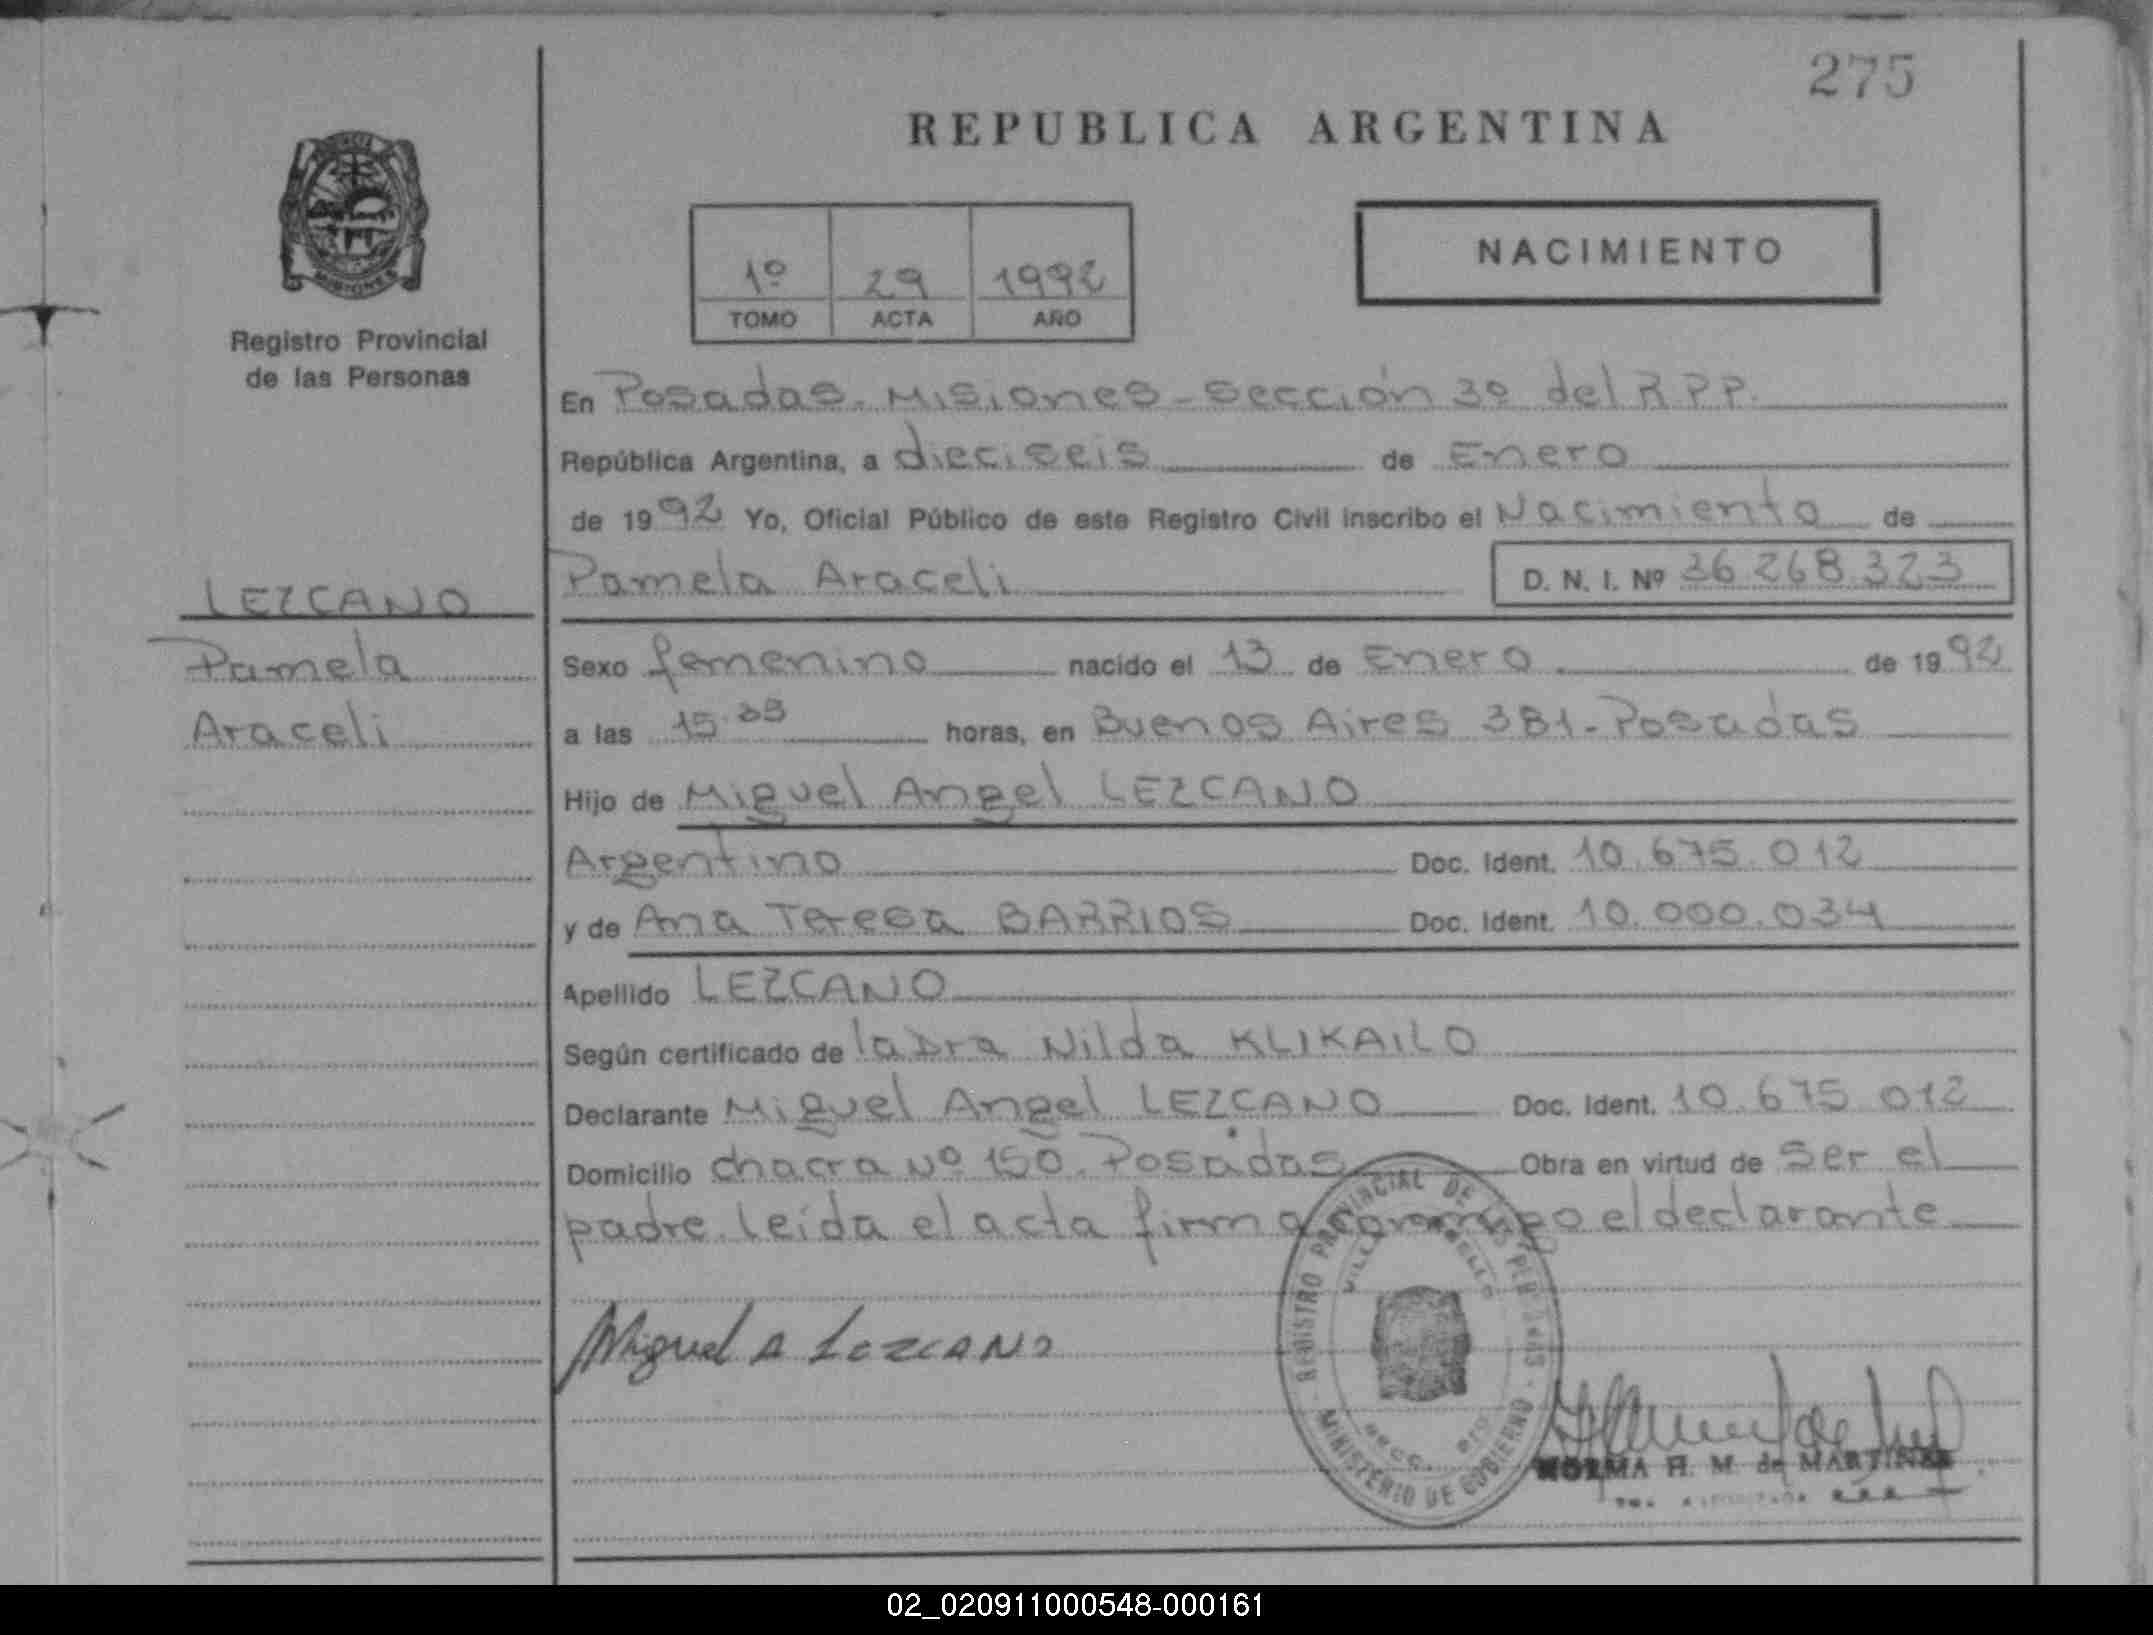 275
REPUBLICA ARGENTINA
NACIMIENTO
1º 29 1992
TOMO ACTA AÑO
Registro Provincial
de las Personas
En Posadas. Misiones - Sección 3º del R.P.P.
República Argentina, a dieciseis de Enero
de 1992 Yo, Oficial Público de este Registro Civil inscribo el Nacimiento de
Pamela Araceli D. N. I. Nº 36.268.323
LEZCANO
Pamela
Araceli
Sexo femenino nacido el 13 de Enero de 1992
a las 15. horas, en Buenos Aires 381 - Posadas
Hijo de Miguel Angel LEZCANO
Argentino Doc. Ident. 10.675.012
y de Ana Teresa BARRIOS Doc. Ident. 10.000.034
Apellido LEZCANO
Según certificado de la Dra Nilda KLIKAILO
Declarante Miguel Angel LEZCANO Doc. Ident. 10.675 012
Domicilio chacra Nº 150. Posadas Obra en virtud de ser el
padre. leída el acta firma conmigo el declarante
Miguel A Lezcano
REGISTRO PROVINCIAL DE LAS PERSONAS
MINISTERIO DE GOBIERNO
NORMA H. M. de MARTINEZ
02_020911000548-000161